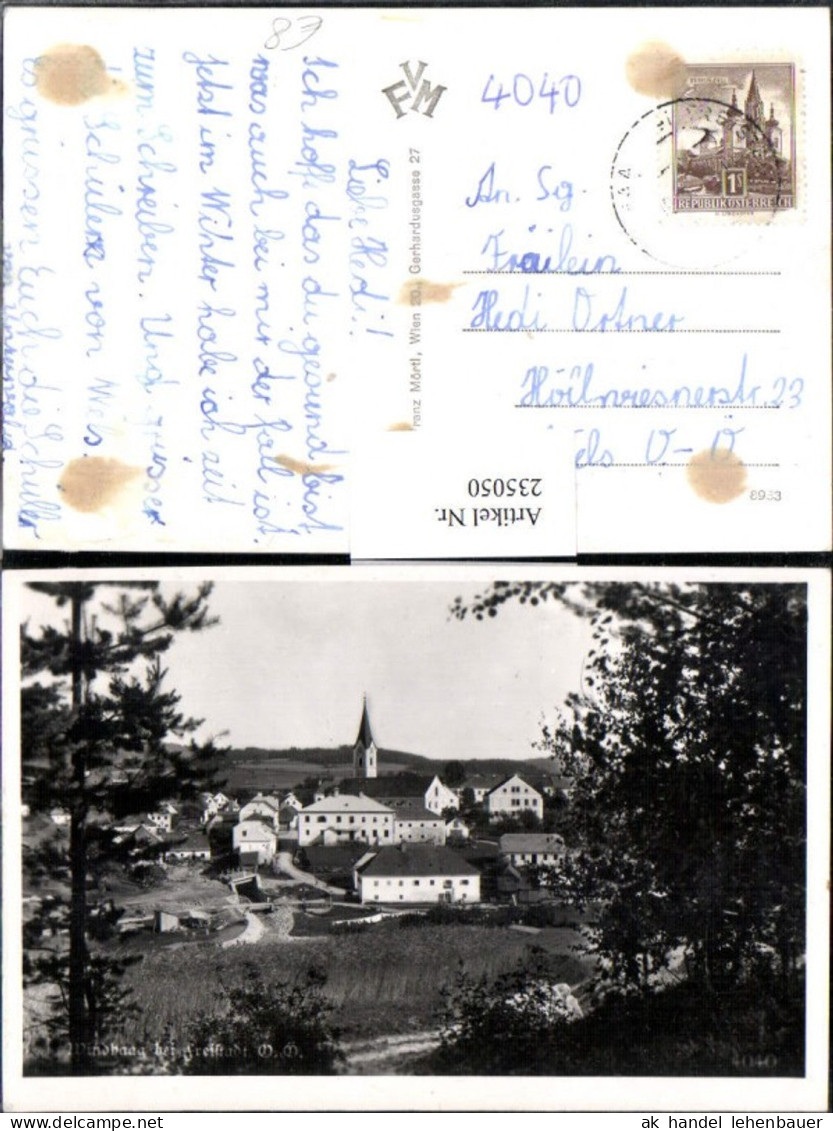 83
Liebe Hedi!
Ich hoffe das du gesund bist
was auch bei mir der fall ist.
Jetzt im Winter habe ich zeit
zum Schreiben. Und
Schüler von Wels.
grüssen Euch die Schüller
FVM
Franz Mörtl, Wien 20., Gerhardusgasse 27
4040
An. Sg.
Fräilein
Hedi Ortner
23
O-Ö
8933
1S
REPUBLIK ÖSTERREICH
Artikel Nr.
235050
Windhaag bei Freistadt O. Ö.
4040
ak handel lehenbauer